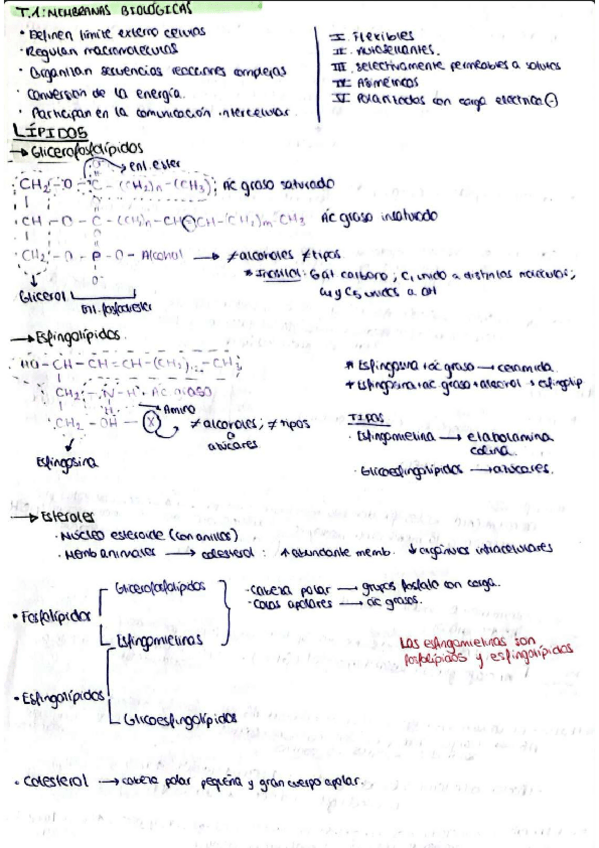 T.1: MEMBRANAS BIOLÓGICAS
· Definen límite externo células
· Regulan macromoléculas
· Organizan secuencias reacciones complejas
· Conversión de la energía.
· Participan en la comunicación intercelular.
I. Flexibles
II. Autosellantes.
III. Selectivamente permeables a solutos
IV. Asimétricos
V. Polarizados con carga eléctrica (-)
LÍPIDOS
→ Glicerofosfolípidos
enl. ester
CH2 - O - C - (CH2)n - (CH3) ; Ác graso saturado
CH - O - C - (CH2)n - CH = CH - (CH2)m CH3 Ác graso insaturado
CH2 - O - P - O - Alcohol → ≠ alcoholes ≠ tipos
O-
* Inositol: 6 at carbono; C1 unido a distintas moléculas;
C4 y C5 unidos a OH
Glicerol
Enl. fosfodiester
→ Esfingolípidos.
HO - CH - CH = CH - (CH2)12 - CH3
CH2 - N - H - Ác graso
H → Amino
CH2 - OH - (X) ≠ alcoholes; ≠ tipos
o
azúcares
Esfingosina
* Esfingosina + ác graso → ceramida.
+ Esfingosina + ác graso + alcohol → esfingolip
TIPOS
· Esfingomielina → etanolamina
colina.
· Glicoesfingolípidos → azúcares.
→ Esteroles
· Núcleo esteroide (con anillos)
· Memb animales → colesterol: ↑ abundante memb. ↓ orgánulos intracelulares
· Fosfolípidos
Glicerofosfolípidos
Esfingomielinas
· Cabeza polar → grupos fosfato con carga.
· Colas apolares → ác grasos.
Las esfingomielinas son
fosfolípidos y esfingolípidos
· Esfingolípidos
Glicoesfingolípidos
· Colesterol → cabeza polar pequeña y gran cuerpo apolar.